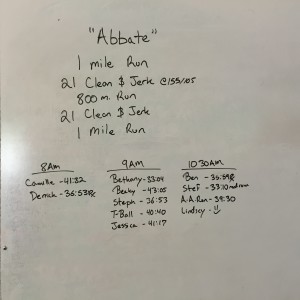 "Abbate"
1 mile Run
21 Clean & Jerk @155/105
800 m. Run
21 Clean & Jerk
1 Mile Run
8Am
Camille - 41:32
Derrick - 36:53Rx
9AM
Bethany - 33:04
Becky - 43:05
Steph - 36:53
J-Ball - 40:40
Jessica - 41:17
10:30AM
Ben - 36:59
Stef - 33:10
A.A.Ron - 39:30
Lindsey -